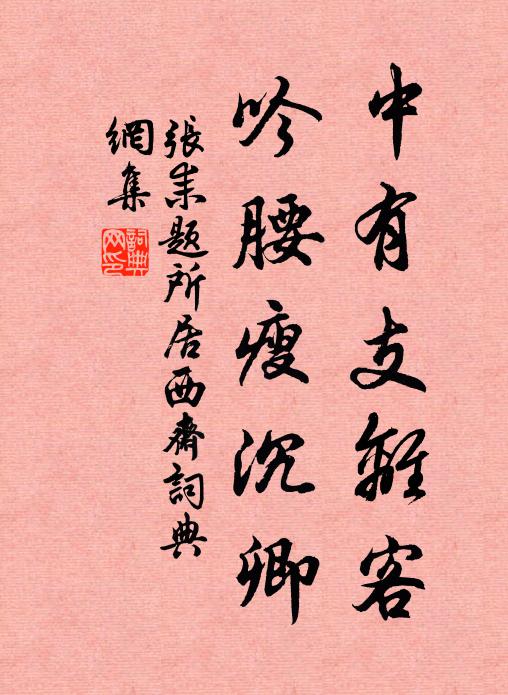 中有支離客
吟腰瘦沉卿
張耒題所居西齋詞典
網集
詞典網印